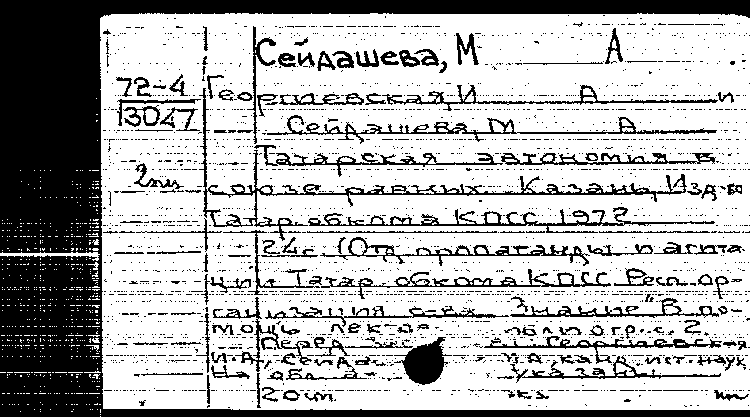 Сейдашева, М А
72-4
13047
Георгиевская, И А и
Сейдашева, М А
Татарская автономия в
2
союзе равных Казань, Изд-во
Татар. обкома КПСС, 1972
24с. (Отд. пропаганды и агита
ции Татар обкома КПСС Респ. ор-
ганизация о-ва Знание" В по-
мощь лектора с. 2.
Перед Георгиевская
И.А., Сейда канд. ист. наук
На обл указаны
20 см